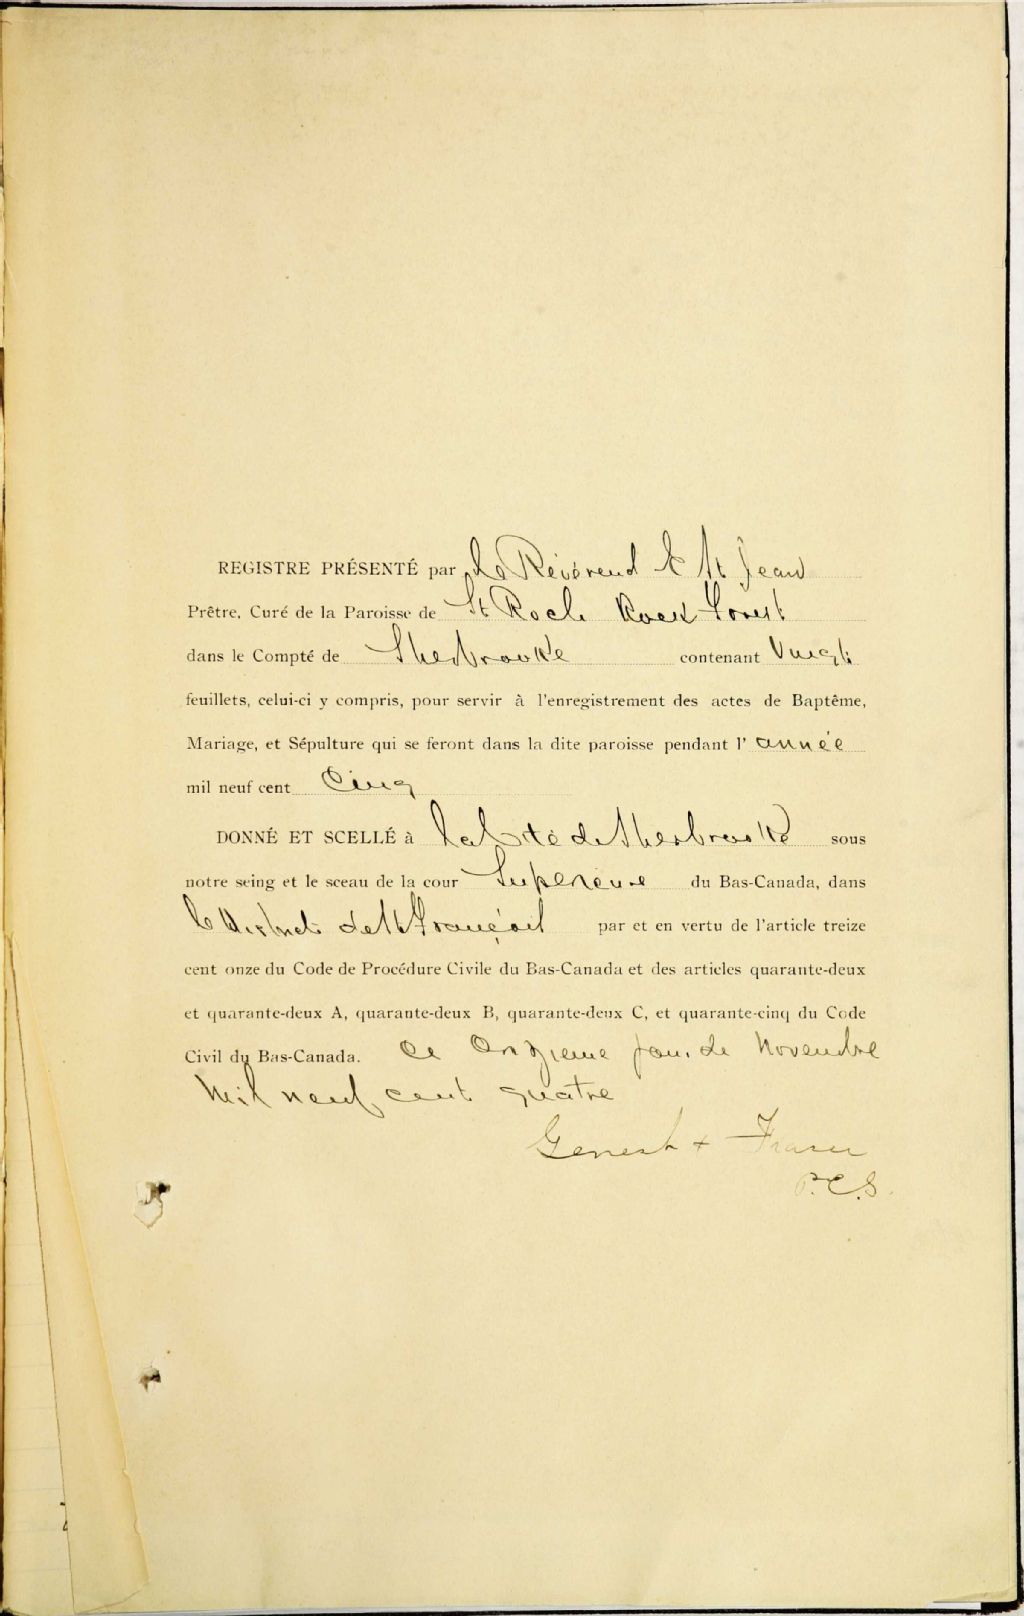 REGISTRE PRÉSENTÉ par Le Révérend E St Jean
Prêtre, Curé de la Paroisse de St Roch Rock Forest
dans le Compté de Sherbrooke contenant Vingt
feuillets, celui-ci y compris, pour servir à l'enregistrement des actes de Baptême,
Mariage, et Sépulture qui se feront dans la dite paroisse pendant l' année
mil neuf cent Cinq
DONNÉ ET SCELLÉ à la Cité de Sherbrooke sous
notre seing et le sceau de la cour Supérieure du Bas-Canada, dans
le District de St François par et en vertu de l'article treize
cent onze du Code de Procédure Civile du Bas-Canada et des articles quarante-deux
et quarante-deux A, quarante-deux B, quarante-deux C, et quarante-cinq du Code
Civil du Bas-Canada. Ce Onzieme jour de Novembre
Mil neuf cent quatre
Genest & Fraser
P.C.S.